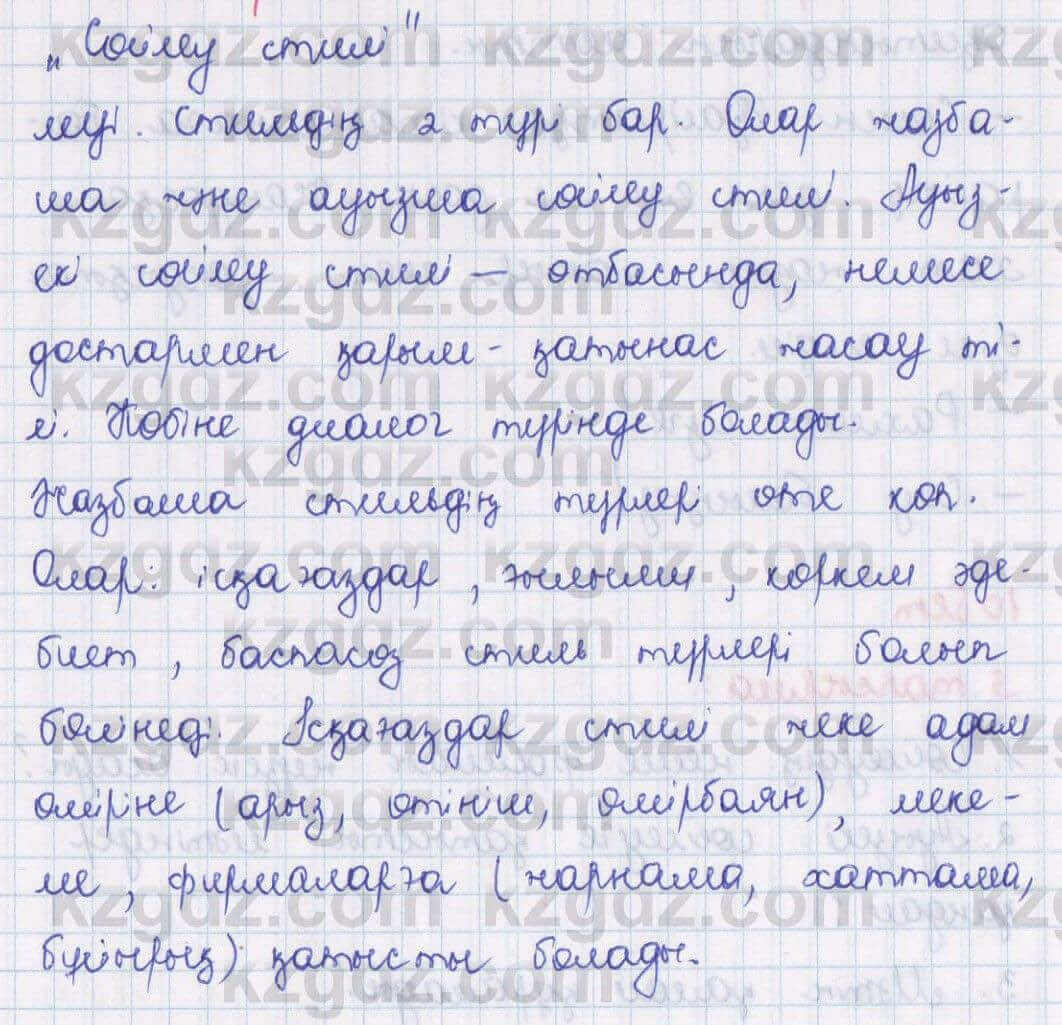 „Сөйлеу стилі"
леуі. Стильдің 2 түрі бар. Олар жазба-
ша және ауызша сөйлеу стилі. Ауыз-
екі сөйлеу стилі – отбасында, немесе
достармен қарым-қатынас жасау ті-
лі. Көбіне диалог түрінде болады.
Жазбаша стильдің түрлері өте көп.
Олар: ісқағаздар, ғылыми, көркем әде-
биет, баспасөз стиль түрлері болып
бөлінеді. Ісқағаздар стилі жеке адам
өміріне (арыз, өтініш, өмірбаян), меке-
ме, фирмаларға (жарнама, хаттама,
бұйрық) қатысты болады.
kzgdz.com